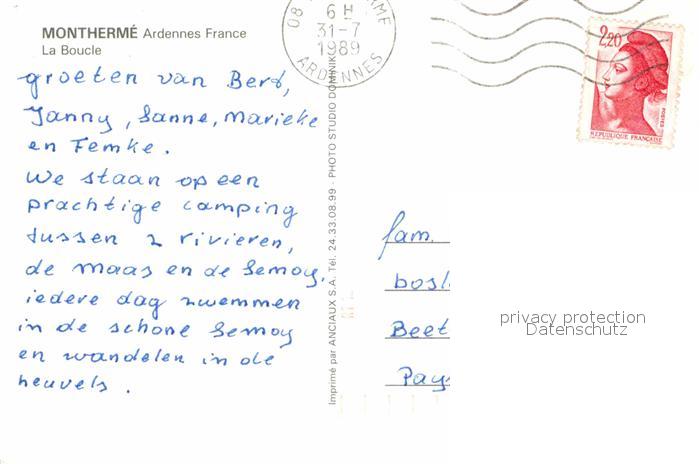 MONTHERMÉ Ardennes France
La Boucle
groeten van Bert,
Janny, Sanne, Marieke
en Femke.
We staan op een
prachtige camping
tussen 2 rivieren,
de maas en de Semoy.
iedere dag zwemmen
in de schone Semoy
en wandelen in de
heuvels.
Imprimé par ANCIAUX S.A. Tél. 24.33.08.99 - PHOTO STUDIO DOMINIK
08
6 H
31-7
1989
ARDENNES
2,20
POSTES
REPUBLIQUE FRANÇAISE
fam.
bosl
Beet
Pay
privacy protection
Datenschutz